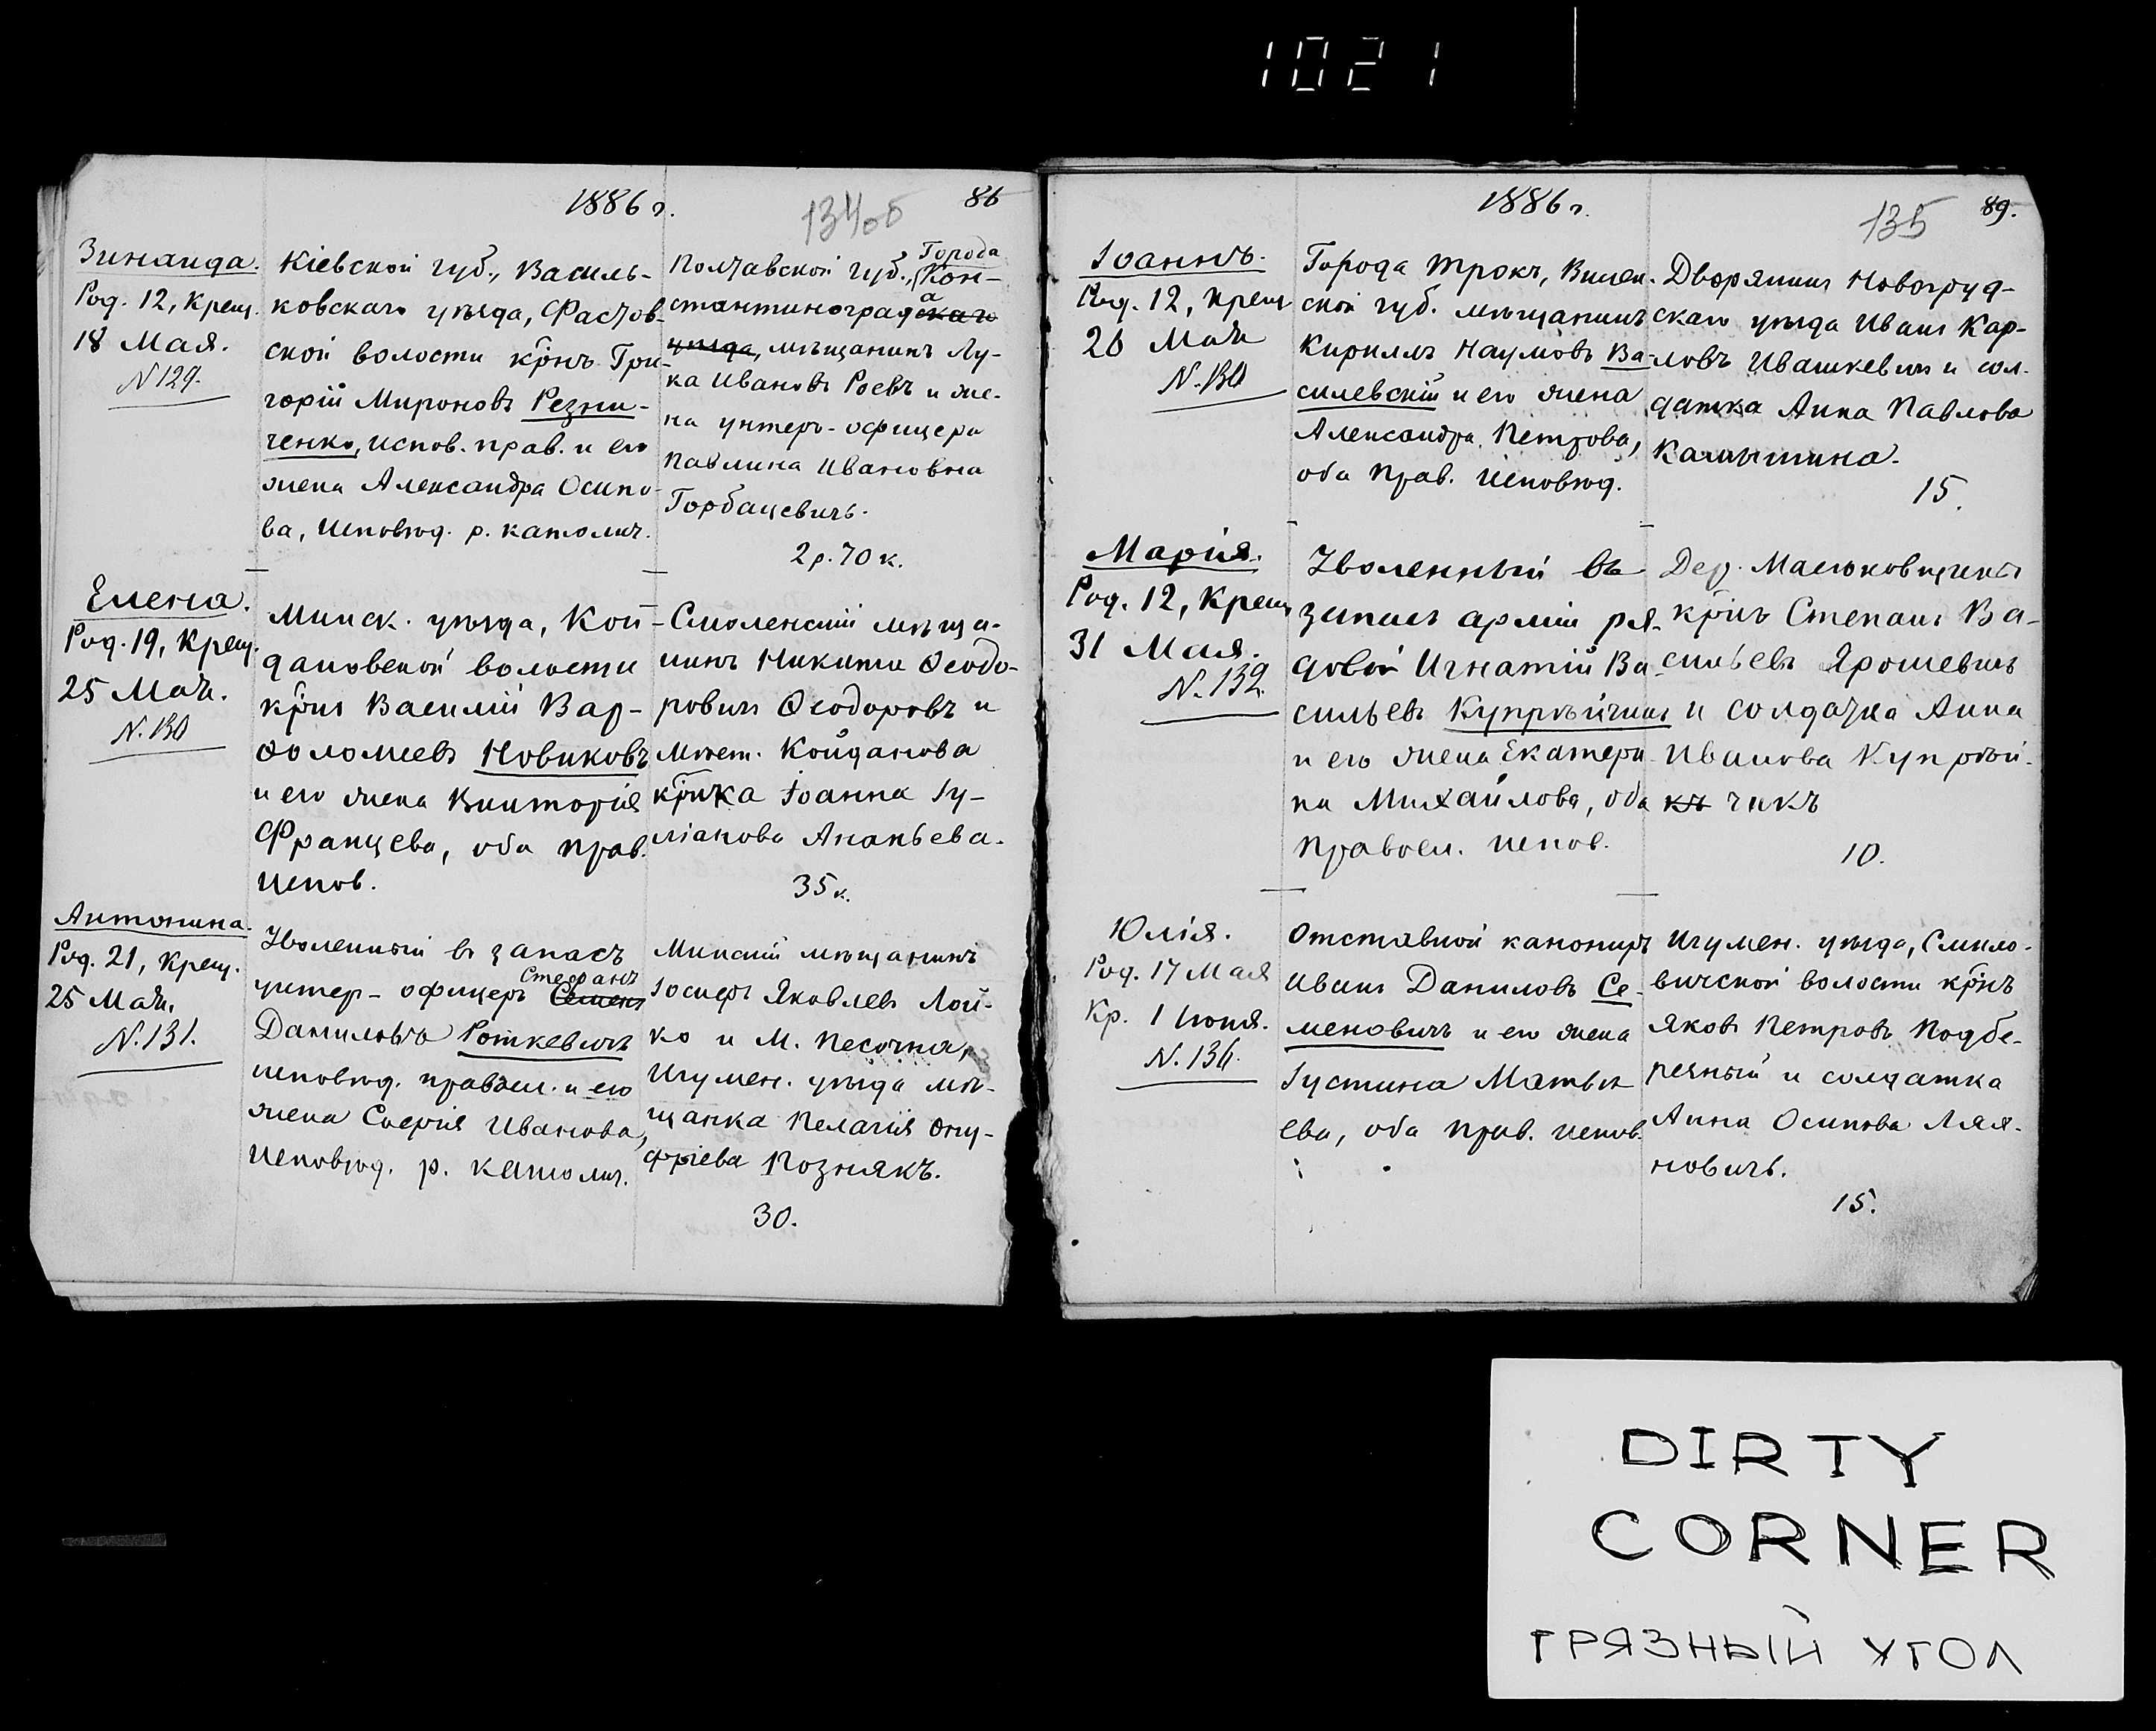 1021
1886 г.
134об
86
Зинаида.
Род. 12, Крещ.
18 Мая.
N 129.
Кіевской губ., Василь-
ковскаго уѣзда, Фастов-
ской волости кр̃нъ Гри-
горій Мироновъ Резни-
ченко, испов. прав. и его
жена Александра Осипо-
ва, исповѣд. р. католич.
Полтавской губ., Города Кон-
стантиноградскаго а
уѣзда, мѣщанинъ Лу-
ка Ивановъ Роевъ и же-
на унтеръ-офицера
Павлина Ивановна
Горбацевичъ.
2 р. 70 к.
Елена.
Род. 19, Крещ.
25 Мая.
N. 130
Минск. уѣзда, Кой-
дановской волости
кр̃нъ Василій Вар-
ѳоломеевъ Новиковъ
и его жена Викторія
Францева, оба прав.
испов.
Смоленскій мѣща-
нинъ Никита Ѳеодо-
ровичъ Ѳеодоровъ и
мѣст. Койданова
кр̃нка Іоанна Іу-
ліанова Ананьева.
35 к.
Антонина.
Род. 21, Крещ.
25 Мая.
N. 131.
Уволенный въ запасъ
унтер-офицеръ Семенъ Стефанъ
Даниловъ Роткевичъ
исповѣд. правосл. и его
жена Софія Иванова,
исповѣд. р. католич.
Минскій мѣщанинъ
Іосифъ Яковлевъ Лой-
ко и м. Песочна,
Игумен. уѣзда мѣ-
щанка Пелагія Ону-
фріева Познякъ.
30.
1886 г.
135
89.
Іоаннъ.
Род. 12, Крещ
26 Мая
N. 130
Города Трокъ, Вилен-
ской губ. мѣщанинъ
Кириллъ Наумовъ Ва-
силевскій и его жена
Александра Петрова,
оба прав. исповѣд.
Дворянинъ Новогруд-
скаго уѣзда Иванъ Кар-
ловъ Ивашкевичъ и сол-
датка Анна Павлова
15.
Марія.
Род. 12, Крещ
31 Мая.
N. 132.
Уволенный въ
запасъ арміи ря-
довой Игнатій Ва-
сильевъ Купрѣйчикъ
и его жена Екатери-
на Михайлова, оба
правосл. испов.
Дер. Масюковщины
кр̃нъ Степанъ Ва-
сильевъ Ярошевичъ
и солдатка Анна
Иванова Купрѣй-
къ чикъ
10.
Юлія.
Род. 17 Мая
Кр. 1 Іюня.
N. 136.
Отставной канониръ
Иванъ Даниловъ Се-
меновичъ и его жена
Іустина Матвѣ-
ева, оба прав. испов.
Игумен. уѣзда, Смило-
вичской волости кр̃нъ
Яковъ Петровъ Подбе-
резный и солдатка
Анна Осипова Лях-
новичъ.
15.
DIRTY
CORNER
ГРЯЗНЫЙ УГОЛ